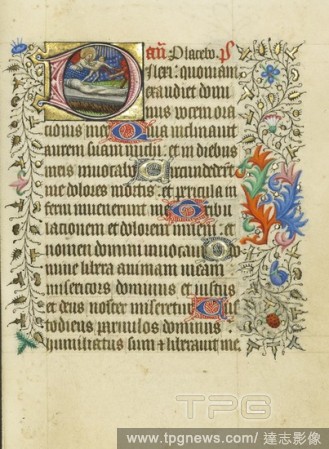 añ. Placebo. ps
Dilexi: quoniam
exaudiet domi
nus vocem ora
cionis mee Quia inclinavit
aurem suam michi: et in diebus
meis invocabo Circumdederunt
me dolores mortis: et pericula in
ferni invenerunt me Tribu
lationem et dolorem inveni: et
nomen domini invocavi O do
mine libera animam meam
misericors dominus et iustus
et deus noster miseretur Cus
todiens parvulos dominus:
humiliatus sum et liberavit me.
TPG
www.tpgnews.com/ 達志影像